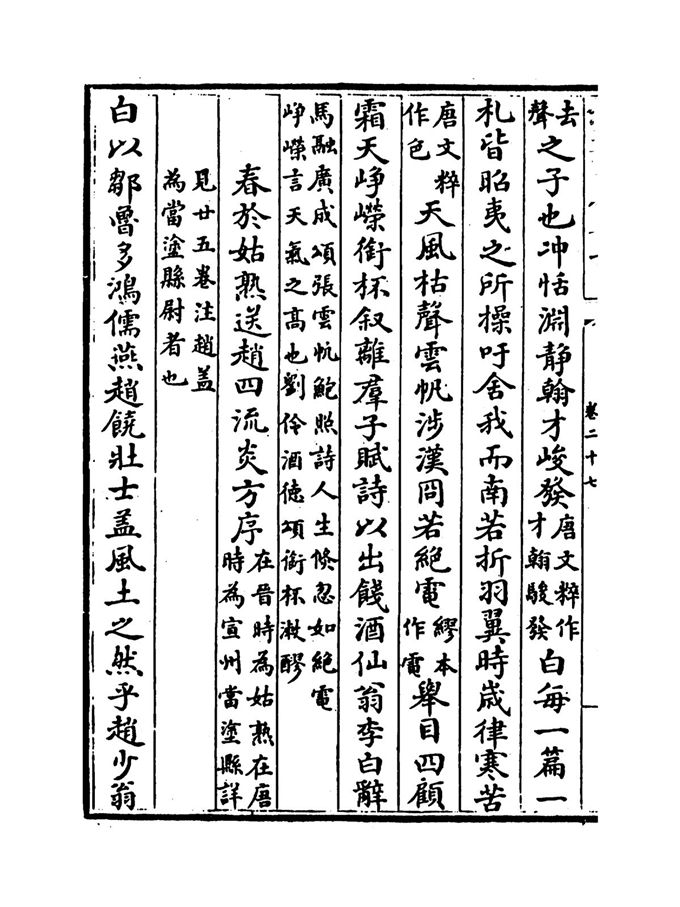 去聲之子也冲恬淵静翰才峻發唐文粹作才翰駿發白每一篇一
札皆昭夷之所操吁舍我而南若折羽翼時歲律寒苦
唐文粹作色天風枯聲雲帆涉漢冏若絶電繆本作電舉目四顧
霜天崢嶸銜杯叙離羣子賦詩以出餞酒仙翁李白辭
馬融廣成頌張雲帆鮑照詩人生倏忽如絶電
崢嶸言天氣之髙也劉伶酒徳頌銜杯漱醪
春於姑熟送趙四流炎方序在晉時為姑熟在唐時為宣州當塗縣詳
見廿五卷注趙盖
為當塗縣尉者也
白以鄒魯多鴻儒燕趙饒壯士盖風土之然乎趙少翁
卷二十七